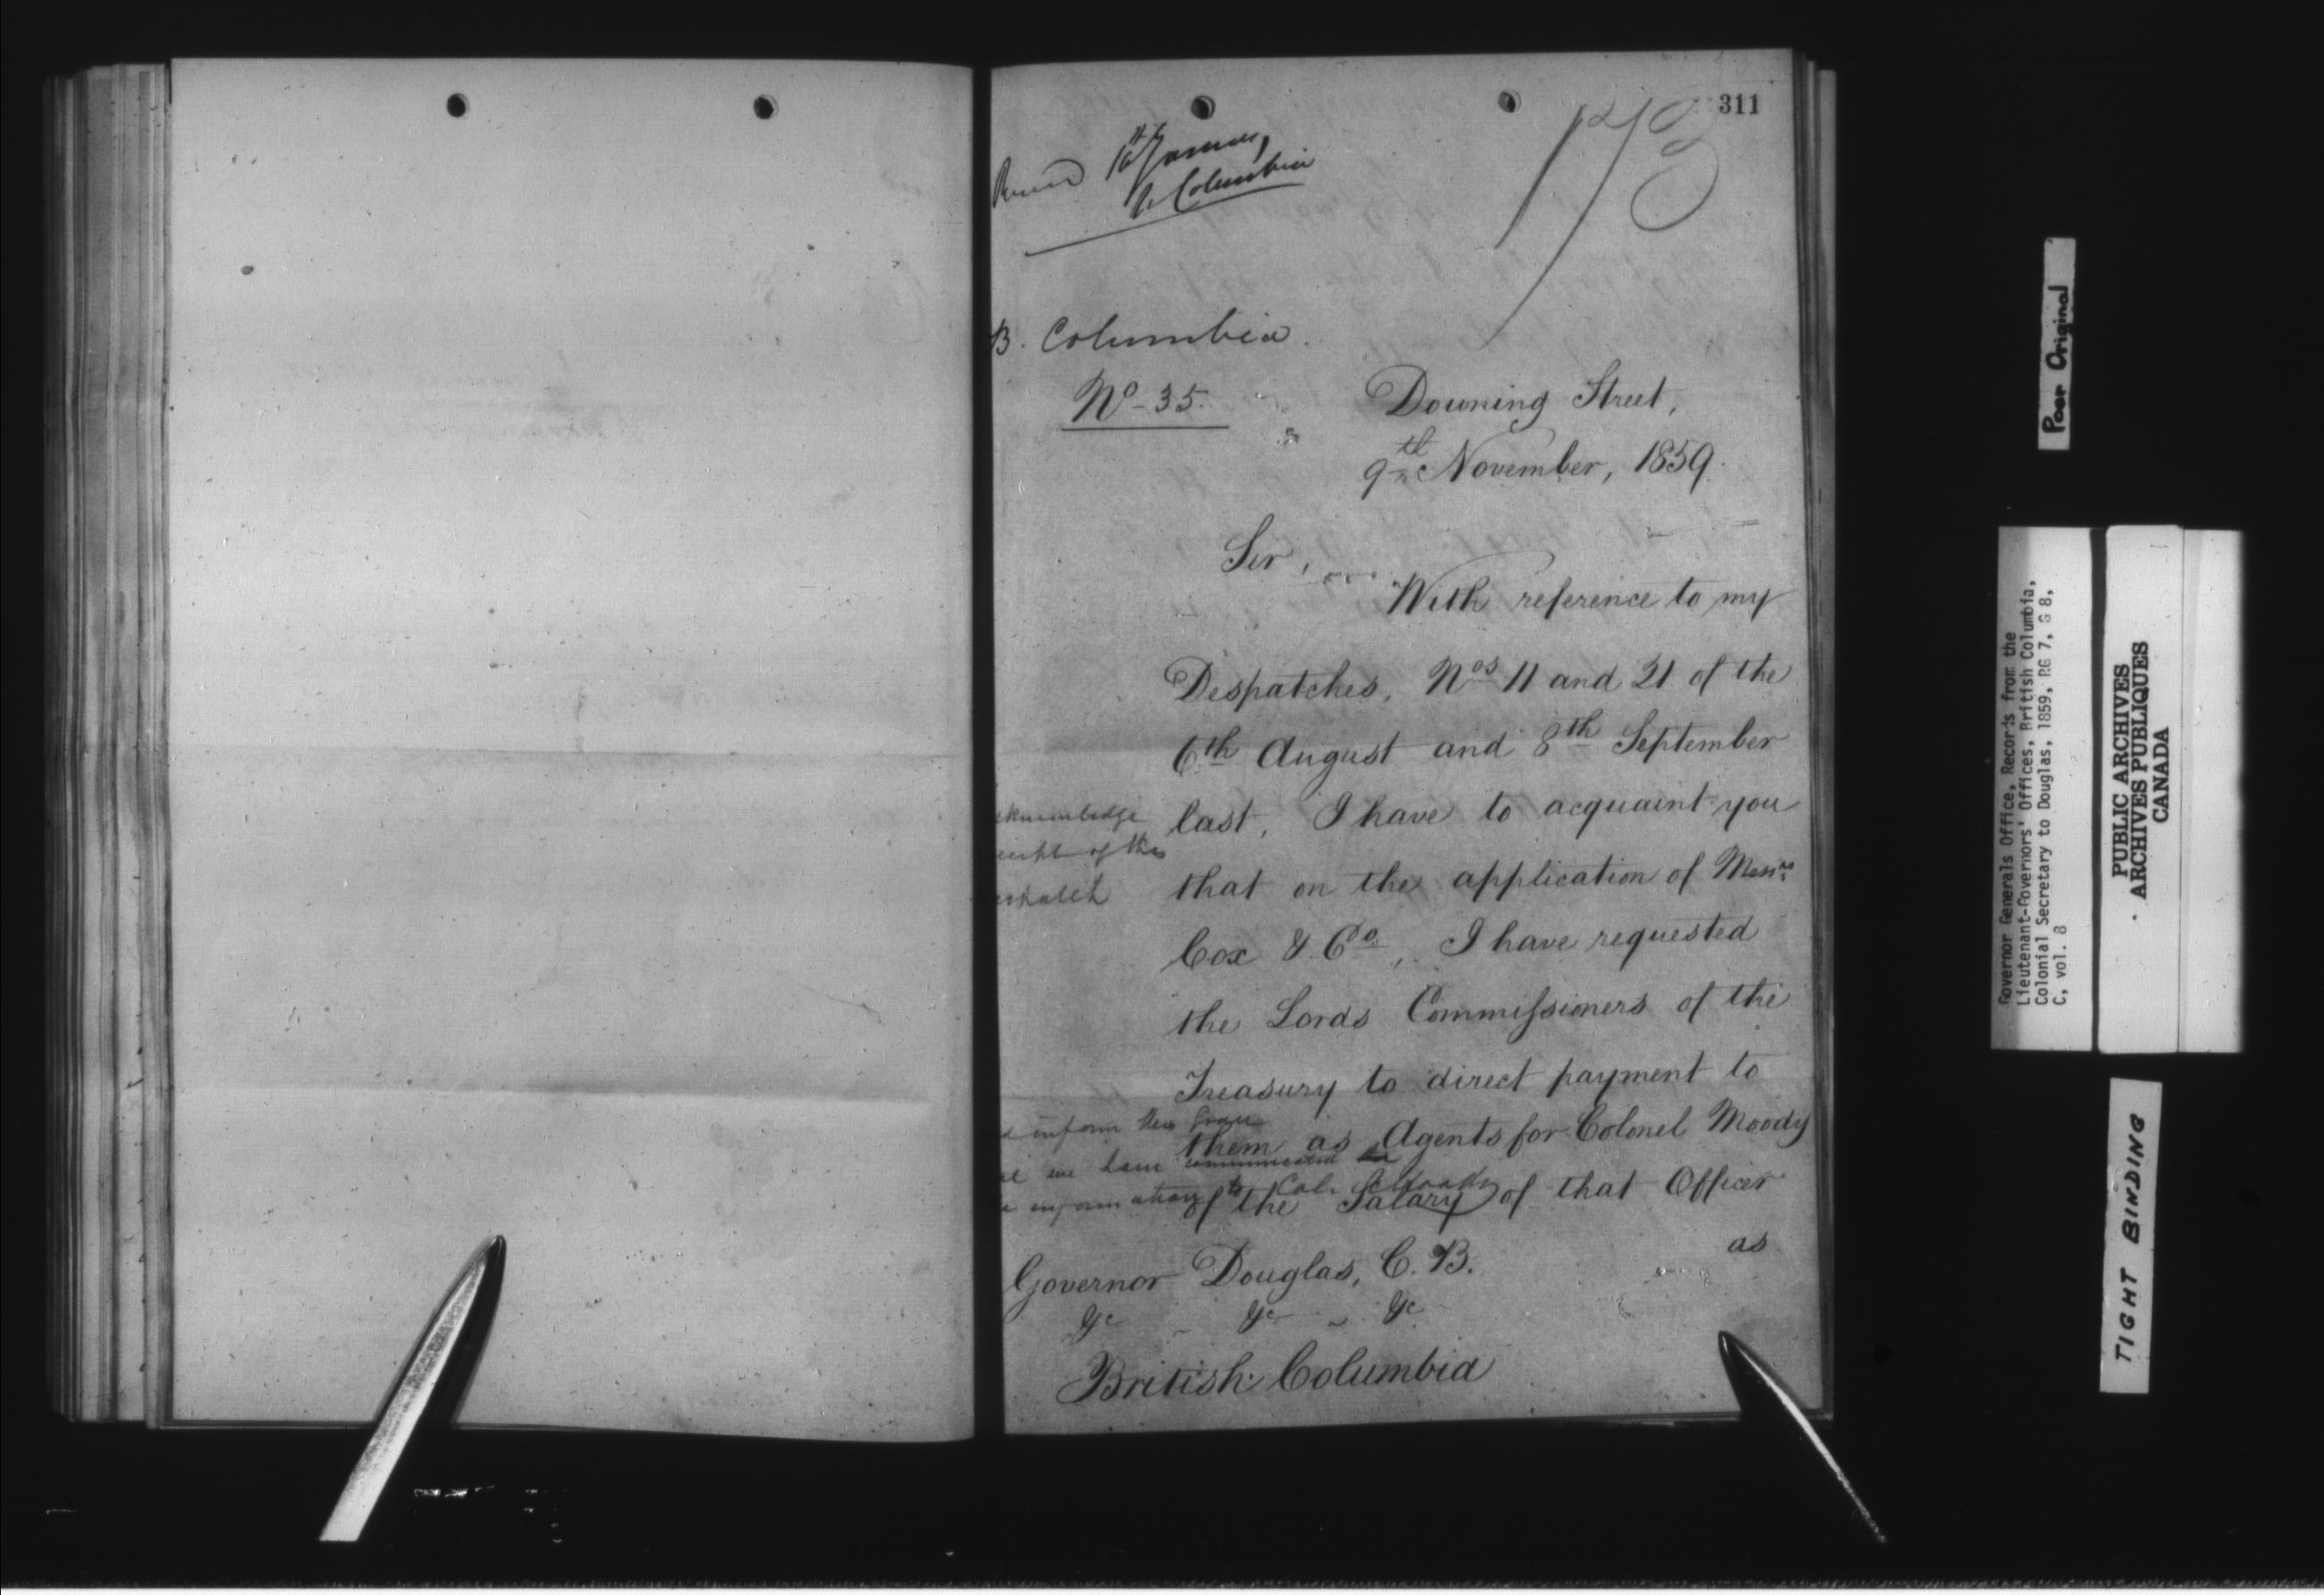 311
173
16th January
B Columbia
B. Columbia.
No 35.
Downing Street,
9th November, 1859.
Sir,
With reference to my
Despatches, Nos 11 and 21 of the
6th August and 8th September
last, I have to acquaint you
that on the application of Messrs
Cox & Co, I have requested
the Lords Commissioners of the
Treasury to direct payment to
them as Agents for Colonel Moody
of the Salary of that Officer
as
Governor Douglas, C.B.
&c &c &c
British Columbia
cknowledge
of this
inform
we have communicated
information to Col. Moody
Poor Original
Governor Generals Office, Records from the
Lieutenant-Governors' Offices, British Columbia,
Colonial Secretary to Douglas, 1859, RG 7, G 8,
C, vol. 8
PUBLIC ARCHIVES
ARCHIVES PUBLIQUES
CANADA
TIGHT BINDING